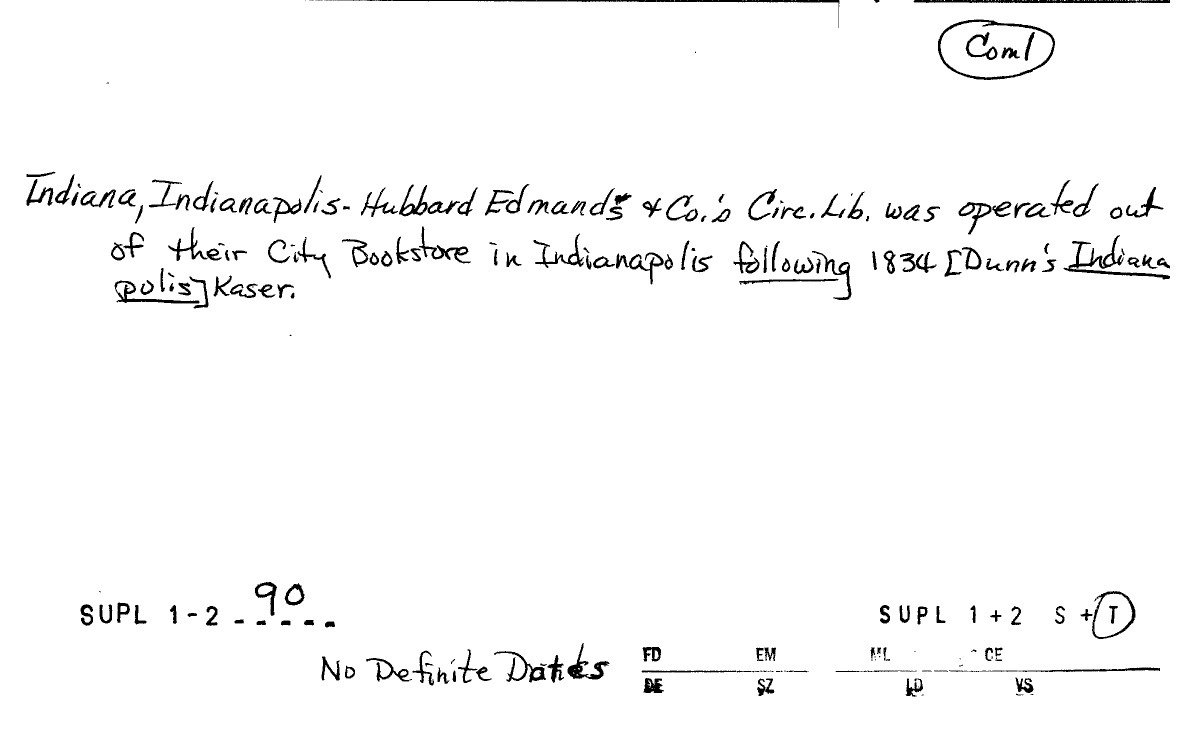 Com'l
Indiana, Indianapolis - Hubbard Edmands & Co.'s Circ. Lib. was operated out
of their City Bookstore in Indianapolis following 1834 [Dunn's Indiana
polis] Kaser.
SUPL 1-2 90
SUPL 1+2 S + T
No Definite Dates
FD EM ML CE
DE SZ LD VS